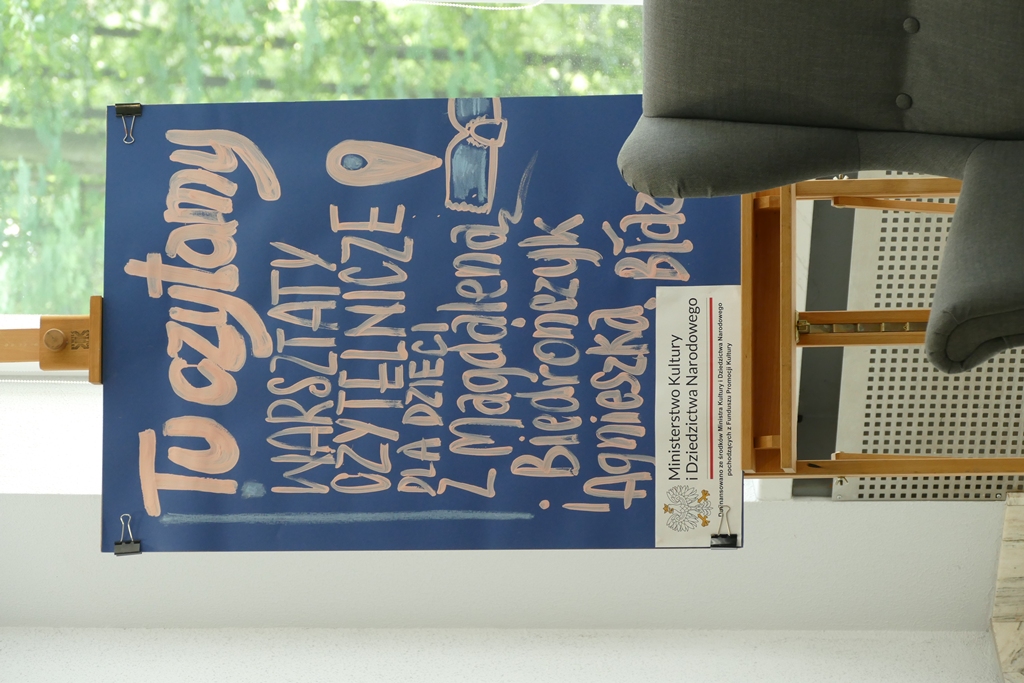 Tu czytamy
WARSZTATY
CZYTELNICZE
DLA DZIECI
Z Magdaleną
Biedronczyk
i Agnieszką
Ministerstwo Kultury
i Dziedzictwa Narodowego
Dofinansowano ze środków Ministra Kultury i Dziedzictwa Narodowego
pochodzących z Funduszu Promocji Kultury